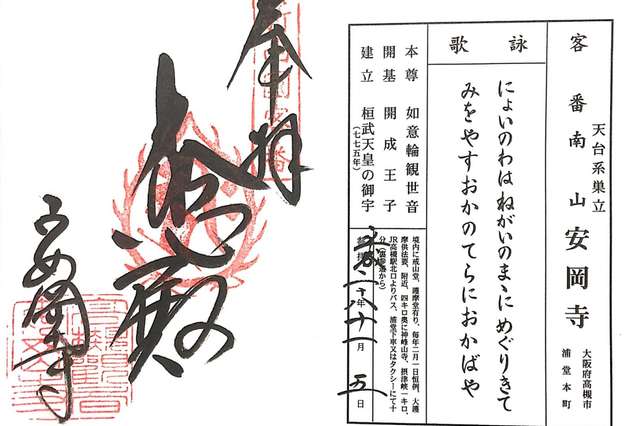 客 番南山 安岡寺
天台系巣立
大阪府高槻市
浦堂本町
詠歌
にょいのわはねがいのまゝにめぐりきて
みをやすおかのてらにおかばや
本尊 如意輪観世音
開基 開成王子
建立 桓武天皇の御宇
(七七五年)
境内に戒山堂、護摩堂有り、毎年二月一日恒例、大護
摩供法要、附近、四キロ奥に神峰山寺、摂津峡一キロ、
JR高槻駅北口よりバス、浦堂下車又はタクシーにて十
分(裏参道から)
年十一月五日
奉拝
安岡寺